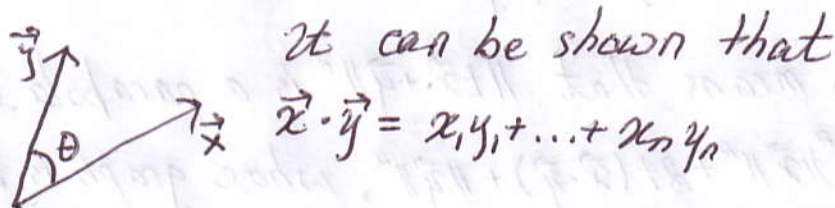 It can be shown that
y⃗
θ
x⃗
x⃗·y⃗ = x₁y₁+...+xₙyₙ